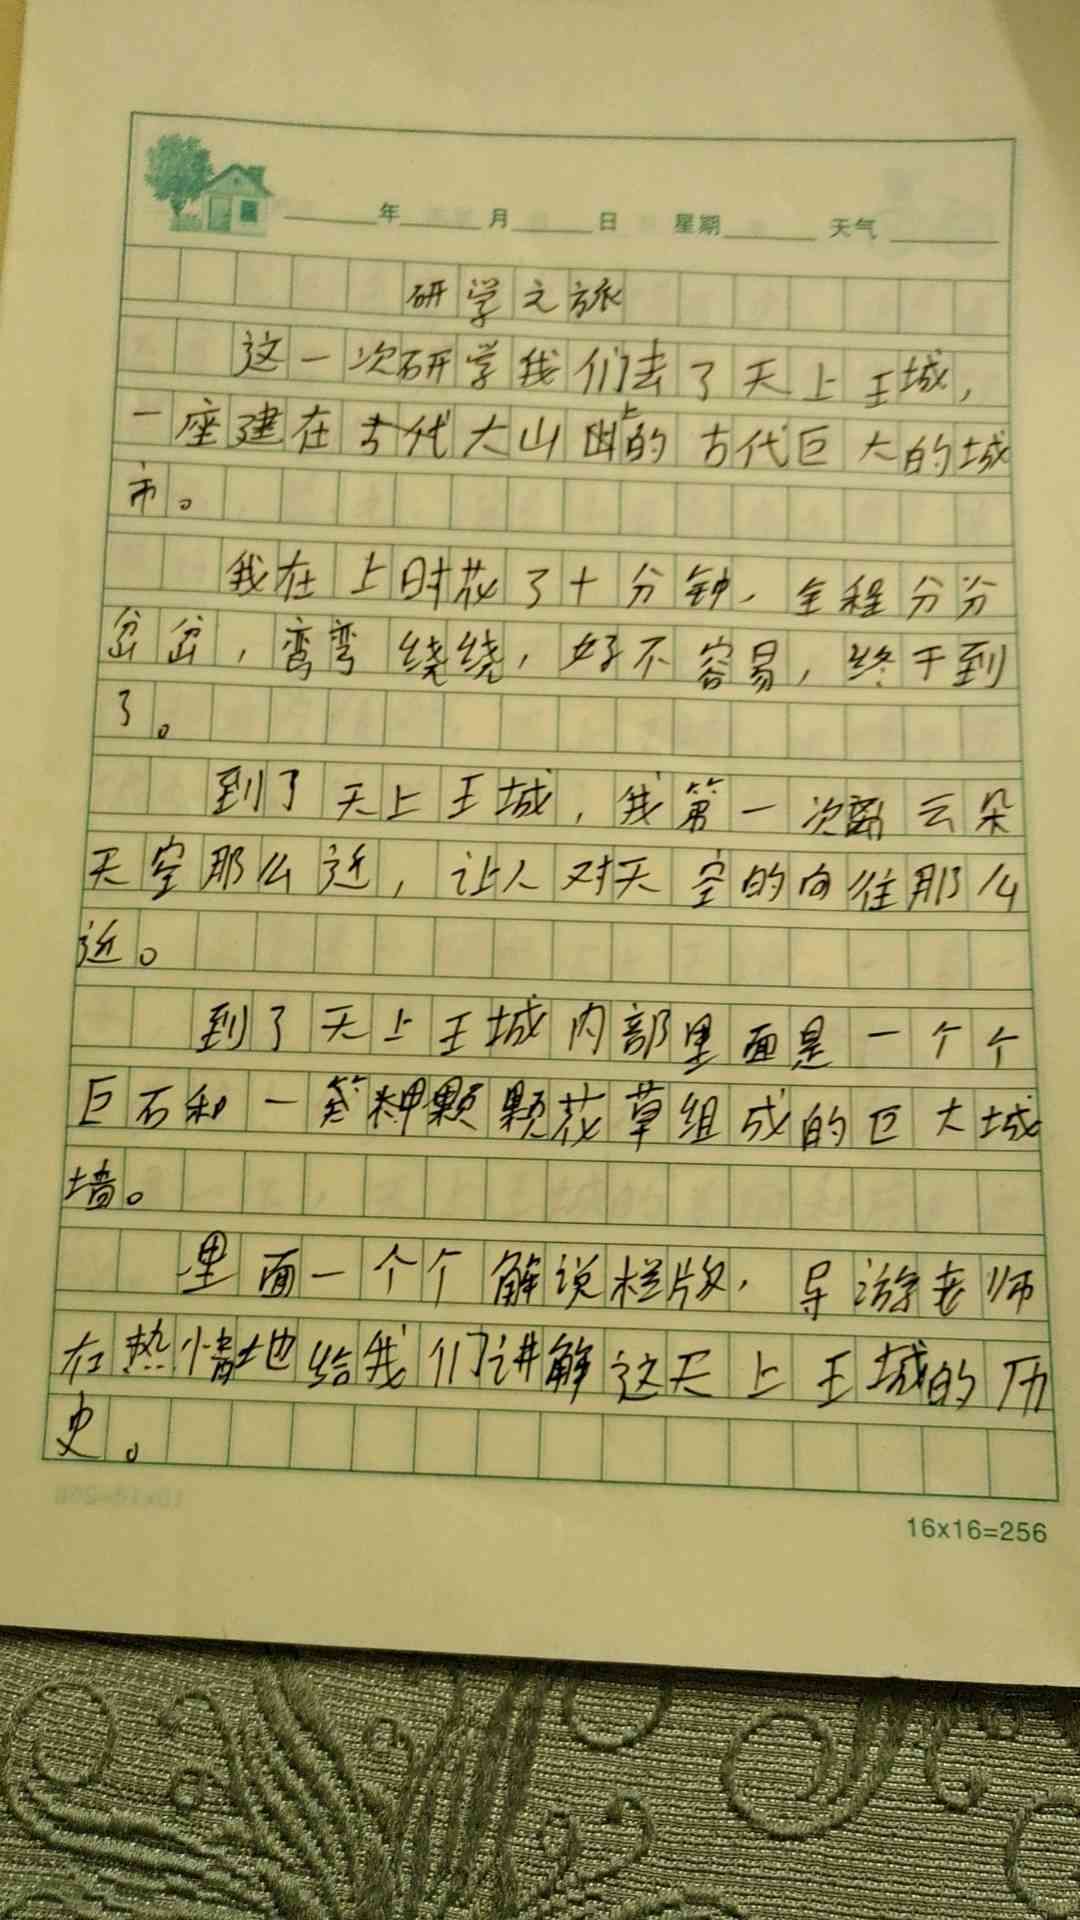 年 月 日 星期 天气
研学之旅
这一次研学我们去了天上王城，
一座建在古代大山上的古代巨大的城
市。
我在上时花了十分钟，全程分分
岔岔，弯弯绕绕，好不容易，终于到
了。
到了天上王城，我第一次离云朵
天空那么近，让人对天空的向往那么
近。
到了天上王城内部里面是一个个
巨石和一颗颗花草组成的巨大城
墙。
里面一个个解说栏版，导游老师
在热情地给我们讲解这天上王城的历
史。
16x16=256